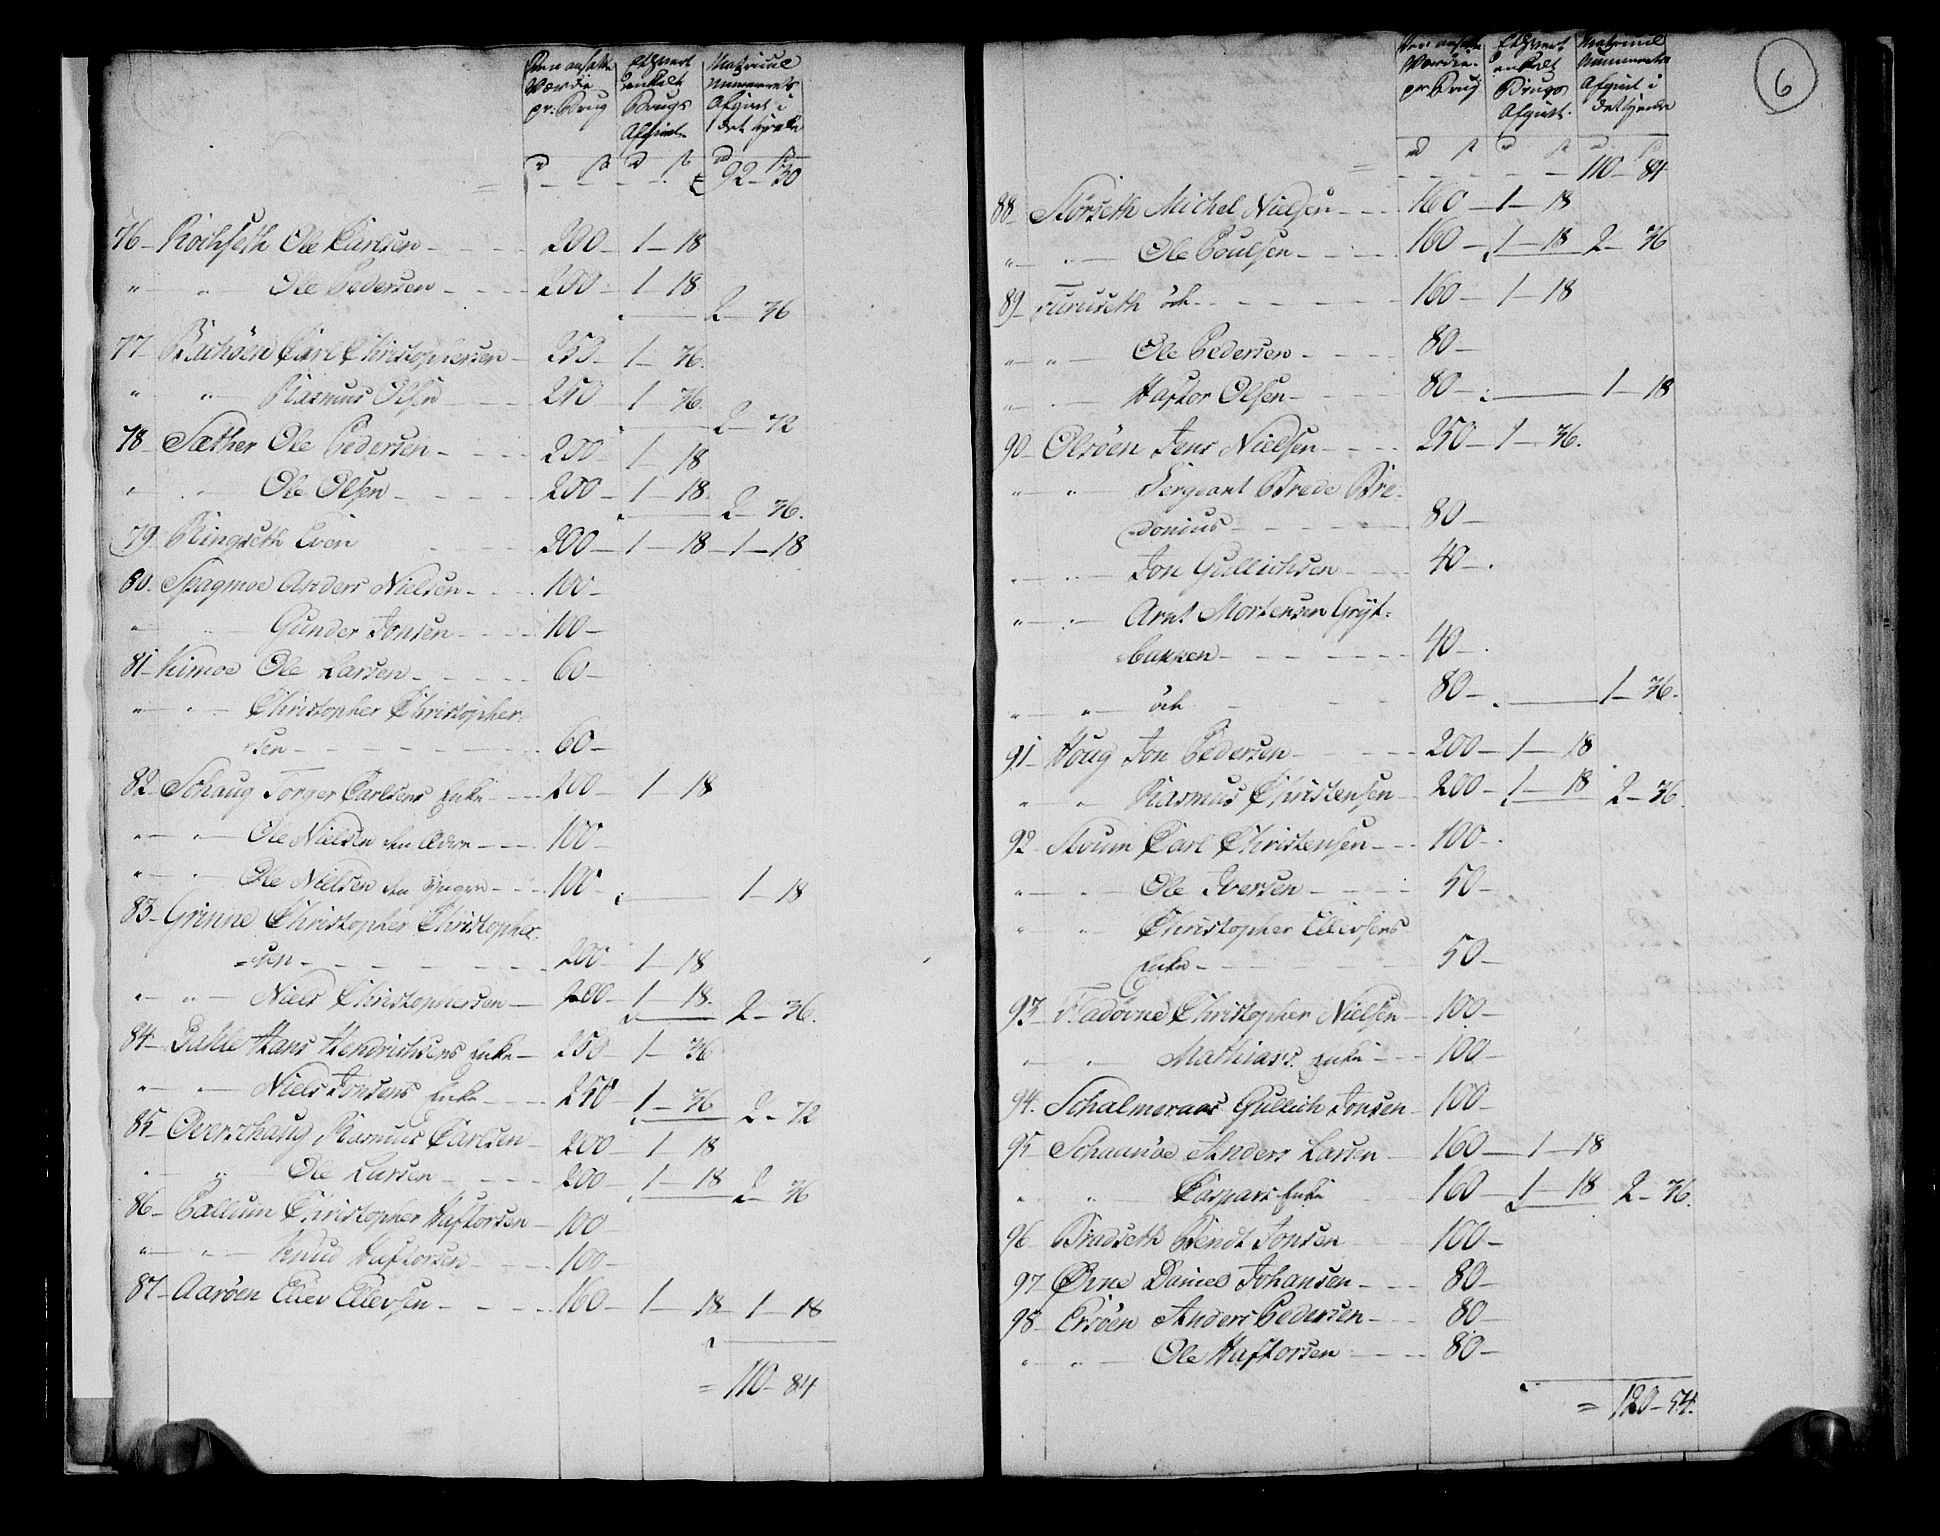 Den ansatte Værdie pr: Brug
Ethvert enkelt Brugs Afgivt.
Matricul Nummerets Afgivt i det heele
92 - 30
76 - Kochseth Ole Carlsen - 200 - 1 - 18
" " Ole Pedersen - 200 - 1 - 18
2 - 36
77 - Bachöen Carl Christophersen - 250 - 1 - 36.
" " Rasmus Olsen 250 - 1 - 36.
2 - 72
78 - Sæther Ole Pedersen - 200 - 1 - 18
" " Ole Olsen - 200 - 1 - 18.
2 - 36.
79 - Ringseth Even 200 - 1 - 18 - 1 - 18
80. Spagmoe Anders Nielsen - 100 -
" " Gunder Jonsen - 100 -
81 - Kimoe Ole Larsen - 60 -
" " Christopher Christopher-
sen - 60 -
82 - Schaug Torger Carlsens Enke - 200 - 1 - 18
" " Ole Nielsen den Ældre - 100 -
" " Ole Nielsen den Yngre - 100 - 1 - 18
83 - Grinne Christopher Christopher-
sen - 200 - 1 - 18
" " Niels Christophersen - 200 - 1 - 18.
2 - 36.
84 - Dahle Hans Hendrichsens Enke - 250 - 1 - 36
" " Niels Jonsens Enke - 250 - 1 - 36 2 - 72
85 - Overschaug Rasmus Carlsen - 200 - 1 - 18
" " Ole Larsen - 200 - 1 - 18 2 - 36
86 - Christopher Haftorsen - 100 -
" " Knud Haftorsen - 100 -
87 - Aaröen Ellev Ellevsen - 160 - 1 - 18 - 1 - 18
= 110 - 84
6
Den ansatte Værdie pr Brug
Ethvert enkelt Brugs Afgivt.
Matricul Nummerets Afgivt i det heele
110 - 84
88 - Störseth Michel Nielsen - 160 - 1 - 18
" " Ole Poulsen - 160 - 1 - 18 2 - 36
89 - Furuseth öde - 160 - 1 - 18
" " Ole Pedersen - 80 -
" " Haftor Olsen - 80 - 1 - 18
90 - Olsöen Jens Nielsen - 250 - 1 - 36.
" " Sergeant Brede Bre-
donius - 80 -
" " Jon Gullichsen - 40 -
" " Arnt Mortensen Gryt-
bakken - 40 -
" " öde 80 - 1 - 36.
91 - Houg Jon Pedersen - 200 - 1 - 18
" " Rasmus Christensen - 200 - 1 - 18 2 - 36.
92 - Stuum Carl Christensen - 100 -
" " Ole Iversen - 50 -
" " Christopher Ellevsens
Enke - 50 -
93 - Fladövne Christopher Nielsen - 100 -
" " Mathias's Enke - 100 -
94. Schalmeraas Gullich Jonsen - 100 -
95 - Schaanöe Anders Larsen - 160 - 1 - 18
" " Caspars Enke 160 - 1 - 18 2 - 36.
96 - Bradseth Bendt Jonsen 100 -
97 - Örne Daniel Johansen - 80 -
98 - Ersöen Anders Pedersen - 80 -
" " Ole Haftorsen - 80 -
= 120 - 54.